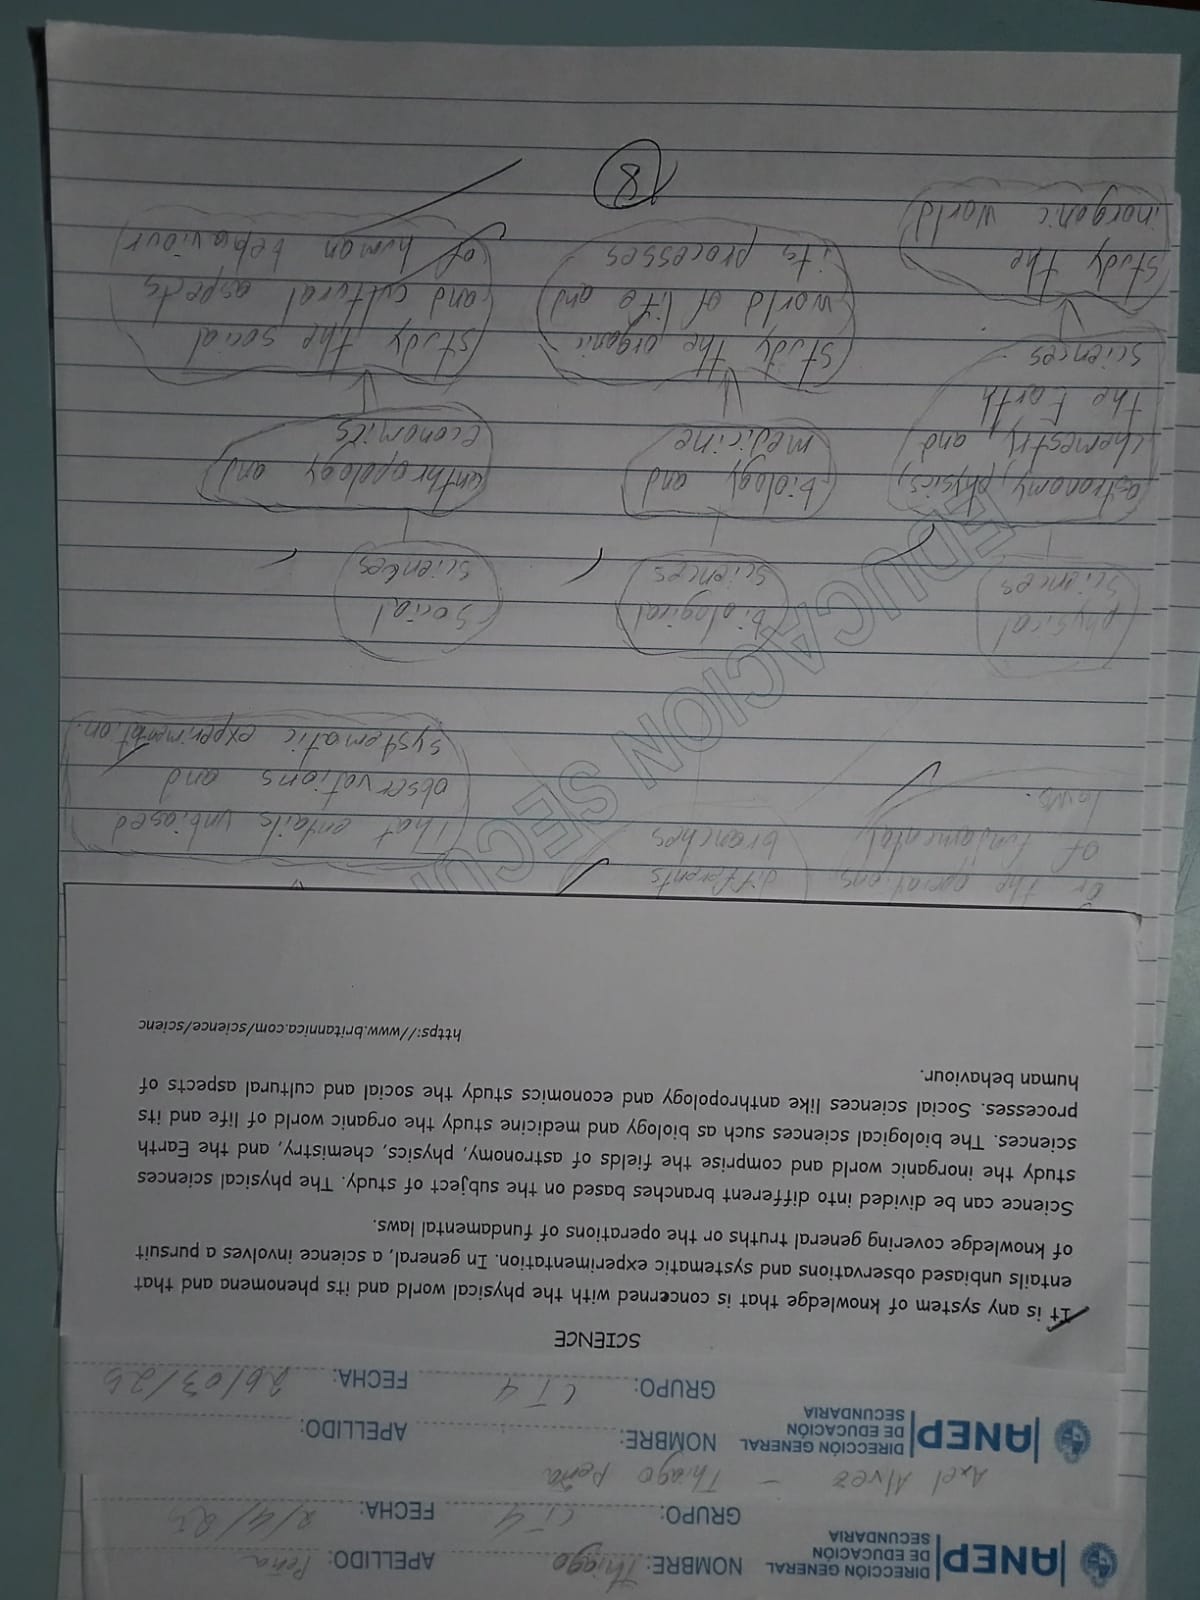 ANEP DIRECCIÓN GENERAL DE EDUCACIÓN SECUNDARIA
NOMBRE: Thiago APELLIDO: Peña
GRUPO: CT4 FECHA: 2/4/25
Axel Alvez - Thiago Peña
ANEP DIRECCIÓN GENERAL DE EDUCACIÓN SECUNDARIA
NOMBRE: APELLIDO:
GRUPO: CT4 FECHA: 26/03/25
SCIENCE
It is any system of knowledge that is concerned with the physical world and its phenomena and that
entails unbiased observations and systematic experimentation. In general, a science involves a pursuit
of knowledge covering general truths or the operations of fundamental laws.
Science can be divided into different branches based on the subject of study. The physical sciences
study the inorganic world and comprise the fields of astronomy, physics, chemistry, and the Earth
sciences. The biological sciences such as biology and medicine study the organic world of life and its
processes. Social sciences like anthropology and economics study the social and cultural aspects of
human behaviour.
https://www.britannica.com/science/scienc
or the operations
of fundamental
laws.
differents
branches
That entails unbiased
observations and
systematic experimentation.
EDUCACION SECU
physical
sciences
biological
sciences
social
sciences
astronomy, physics,
chemestry, and
the Earth
sciences
biology and
medicine
anthropology and
economics
study the
inorganic world
study the organic
world of life and
its processes
study the social
and cultural aspects
of human behaviour
8